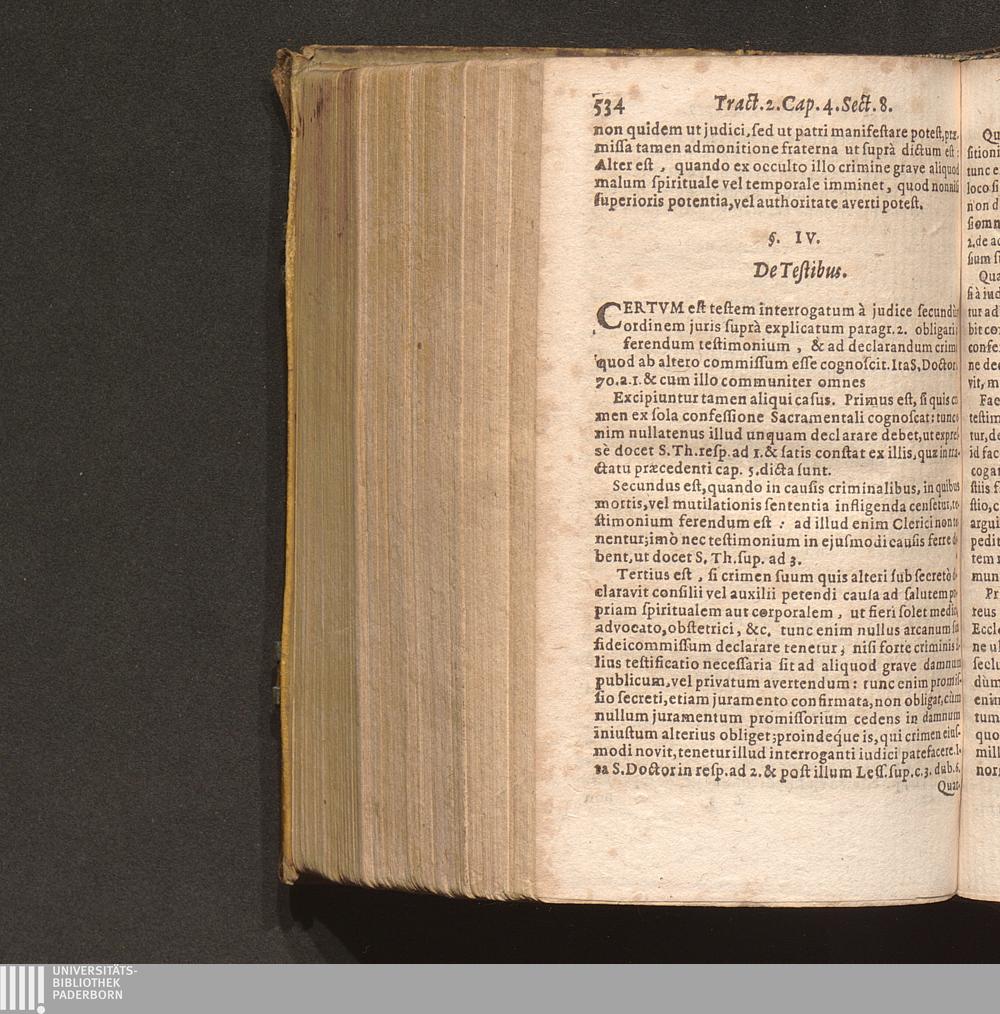 534 Tract.2.Cap.4.Sect.8.
non quidem ut judici, ſed ut patri manifeſtare poteſt, præ-
miſſa tamen admonitione fraterna ut ſuprà dictum eſt:
Alter eſt, quando ex occulto illo crimine grave aliquod
malum ſpirituale vel temporale imminet, quod nonniſi
ſuperioris potentia, vel authoritate averti poteſt.
§. IV.
De Teſtibus.
CERTVM eſt teſtem interrogatum à judice ſecundùm
ordinem juris ſuprà explicatum paragr. 2. obligari
ferendum teſtimonium, & ad declarandum crimen
quod ab altero commiſſum eſſe cognoſcit. Ita S, Doctor
70.a.1.& cum illo communiter omnes
Excipiuntur tamen aliqui caſus. Primus eſt, ſi quis
men ex ſola confeſſione Sacramentali cognoſcat: tunc
nim nullatenus illud unquam declarare debet, ut expreſ-
sè docet S. Th. reſp. ad 1. & ſatis conſtat ex illis, quæ in tra-
ctatu præcedenti cap. 5. dicta ſunt.
Secundus eſt, quando in cauſis criminalibus, in quibus
mortis, vel mutilationis ſententia infligenda cenſetur, te-
ſtimonium ferendum eſt : ad illud enim Clerici non te-
nentur; imò nec teſtimonium in ejuſmodi cauſis ferre de-
bent, ut docet S. Th. ſup. ad 3.
Tertius eſt, ſi crimen ſuum quis alteri ſub ſecretò de-
claravit conſilii vel auxilii petendi cauſa ad ſalutem pro-
priam ſpiritualem aut corporalem, ut fieri ſolet medico,
advocato, obſtetrici, &c. tunc enim nullus arcanum ſibi
fideicommiſſum declarare tenetur; niſi forte criminis il-
lius teſtificatio neceſſaria ſit ad aliquod grave damnum
publicum, vel privatum avertendum: tunc enim promiſ-
ſio ſecreti, etiam juramento confirmata, non obligat, cùm
nullum juramentum promiſſorium cedens in damnum
iniuſtum alterius obliget; proindeque is, qui crimen eiuſ-
modi novit, tenetur illud interroganti iudici patefacere. I-
ta S. Doctor in reſp. ad 2. & poſt illum Leſſ. ſup. c. 3. dub. 6.
Quar-
UNIVERSITÄTS-
BIBLIOTHEK
PADERBORN